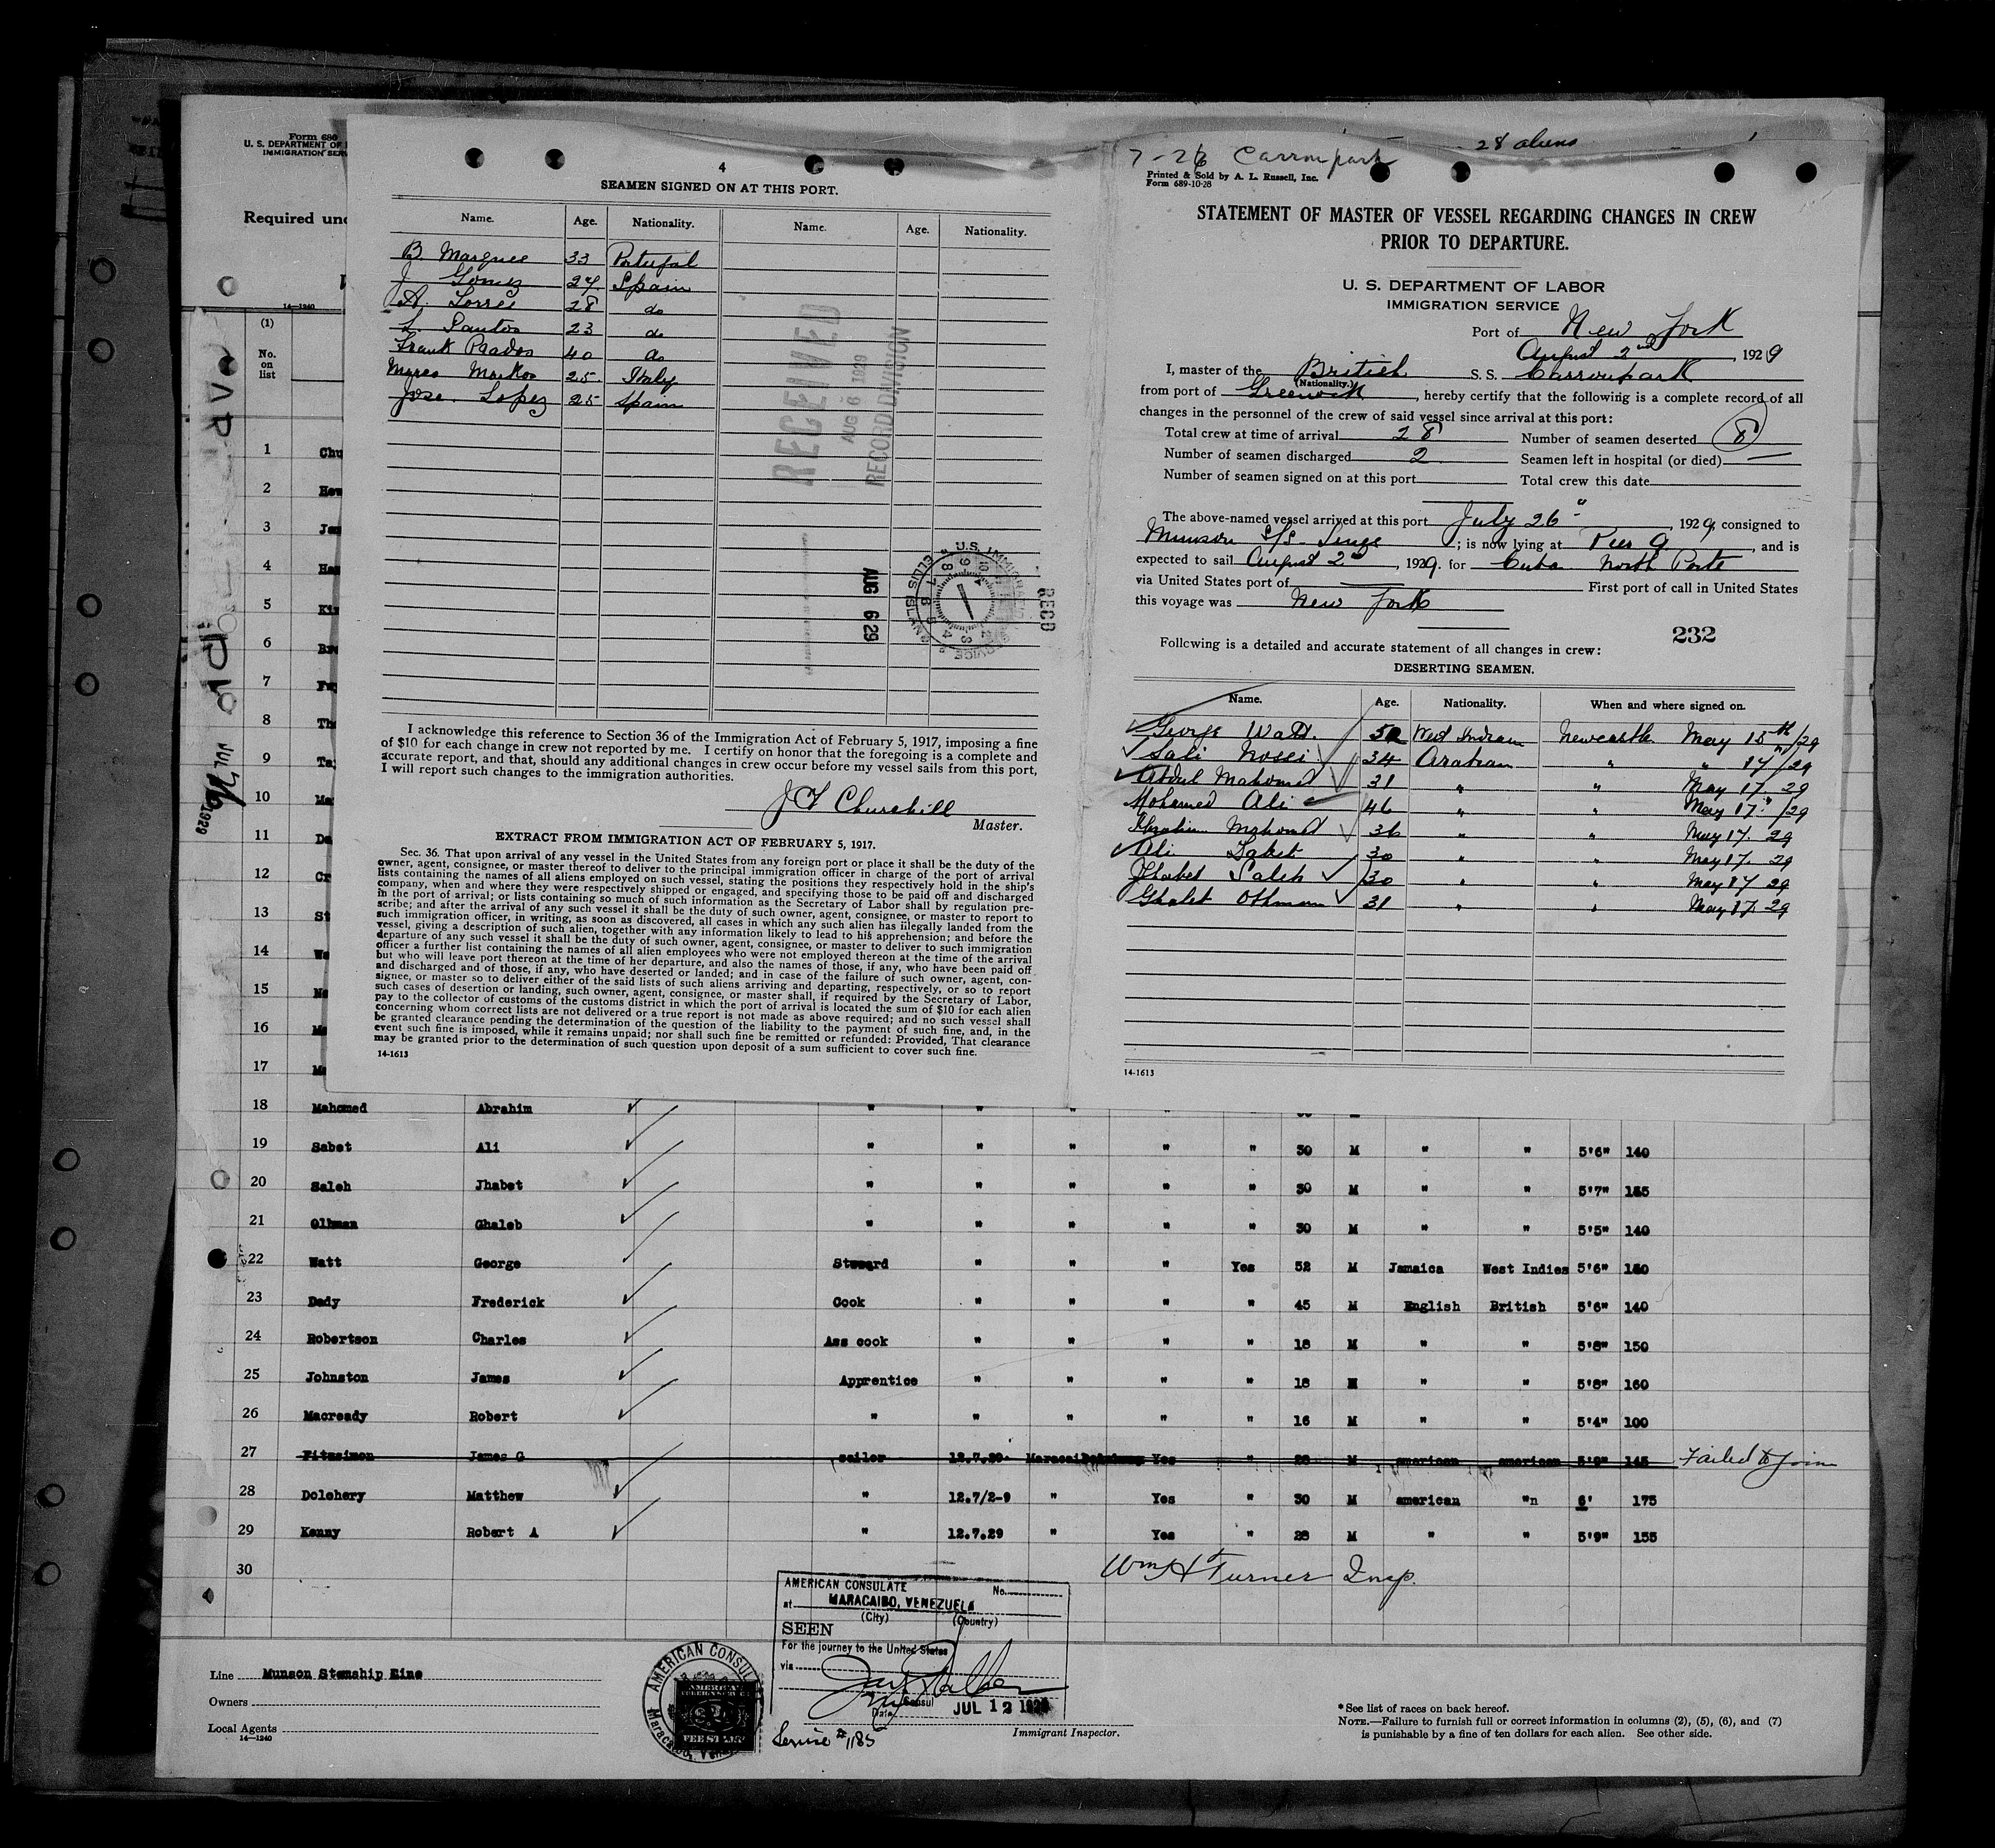 Form 680
U. S. DEPARTMENT OF
IMMIGRATION SER
Required und
14—1240
(1)
No. on list
1 Chu
2 How
3 Jam
4 Han
5 Kin
6 Bro
7
8 Th
9 Ta
10 Ma
11 De
12 Cr
13 St
14 We
15
16
17
JUL 26 1929
4
SEAMEN SIGNED ON AT THIS PORT.
Name. Age. Nationality. Name. Age. Nationality.
B. Marques 33 Portugal
J Gomez 27 Spain
A. Torres 28 do
L. Santos 23 do
Frank Prados 40 do
25 Italy
Jose. Lopez 25 Spain
RECEIVED
AUG 6 1929
RECORD DIVISION
AUG 6 29
U.S. IMMIGRATION SERVICE ELLIS ISLAND
RECD
I acknowledge this reference to Section 36 of the Immigration Act of February 5, 1917, imposing a fine
of $10 for each change in crew not reported by me. I certify on honor that the foregoing is a complete and
accurate report, and that, should any additional changes in crew occur before my vessel sails from this port,
I will report such changes to the immigration authorities.
J F Churchill
Master.
EXTRACT FROM IMMIGRATION ACT OF FEBRUARY 5, 1917.
Sec. 36. That upon arrival of any vessel in the United States from any foreign port or place it shall be the duty of the
owner, agent, consignee, or master thereof to deliver to the principal immigration officer in charge of the port of arrival
lists containing the names of all aliens employed on such vessel, stating the positions they respectively hold in the ship's
company, when and where they were respectively shipped or engaged, and specifying those to be paid off and discharged
in the port of arrival; or lists containing so much of such information as the Secretary of Labor shall by regulation pre-
scribe; and after the arrival of any such vessel it shall be the duty of such owner, agent, consignee, or master to report to
such immigration officer, in writing, as soon as discovered, all cases in which any such alien has illegally landed from the
vessel, giving a description of such alien, together with any information likely to lead to his apprehension; and before the
departure of any such vessel it shall be the duty of such owner, agent, consignee, or master to deliver to such immigration
officer a further list containing the names of all alien employees who were not employed thereon at the time of the arrival
but who will leave port thereon at the time of her departure, and also the names of those, if any, who have been paid off
and discharged and of those, if any, who have deserted or landed; and in case of the failure of such owner, agent, con-
signee, or master so to deliver either of the said lists of such aliens arriving and departing, respectively, or so to report
such cases of desertion or landing, such owner, agent, consignee, or master shall, if required by the Secretary of Labor,
pay to the collector of customs of the customs district in which the port of arrival is located the sum of $10 for each alien
concerning whom correct lists are not delivered or a true report is not made as above required; and no such vessel shall
be granted clearance pending the determination of the question of the liability to the payment of such fine, and, in the
event such fine is imposed, while it remains unpaid; nor shall such fine be remitted or refunded: Provided, That clearance
may be granted prior to the determination of such question upon deposit of a sum sufficient to cover such fine.
14-1613
28 aliens
7-26 Carronpark
Printed & Sold by A. L. Russell, Inc.
Form 689-10-28
STATEMENT OF MASTER OF VESSEL REGARDING CHANGES IN CREW
PRIOR TO DEPARTURE.
U. S. DEPARTMENT OF LABOR
IMMIGRATION SERVICE
Port of New York
August 2nd, 1929
I, master of the British S. S. Carronpark
(Nationality.)
from port of Greenock, hereby certify that the following is a complete record of all
changes in the personnel of the crew of said vessel since arrival at this port:
Total crew at time of arrival 28 Number of seamen deserted 8
Number of seamen discharged 2 Seamen left in hospital (or died) —
Number of seamen signed on at this port Total crew this date
The above-named vessel arrived at this port July 26", 1929, consigned to
Munson S/S Line; is now lying at Pier 9, and is
expected to sail August 2nd, 1929. for Cuba North Ports
via United States port of First port of call in United States
this voyage was New York
232
Following is a detailed and accurate statement of all changes in crew:
DESERTING SEAMEN.
Name. Age. Nationality. When and where signed on.
George Watt. 52 West Indian Newcastle May 15th/29
Sali Nosei 34 Arabian " " 17/29
Abdul Mahomed 31 " " May 17. 29
Mohamed Ali 46 " " May 17"/29
Abrahim Mahomed 36 " " May 17. 29
Ali Sabet 30 " " May 17. 29
Jhabet Saleh 30 " " May 17 29
Ghalet Othman 31 " " May 17. 29
14-1613
18 Mahomed Abrahim " " " " M
19 Sabet Ali " " " " " 30 M " " 5'6" 140
20 Saleh Jhabet " " " " " 30 M " " 5'7" 155
21 Olhman Ghaleb " " " " " 30 M " " 5'5" 140
22 Watt George Steward " " " Yes 52 M Jamaica West Indies 5'6" 150
23 Dady Frederick Cook " " " " 45 M English British 5'6" 140
24 Robertson Charles Ass cook " " " " 18 M " " 5'8" 150
25 Johnston James Apprentice " " " " 18 M " " 5'8" 160
26 Macready Robert " " " " " 16 M " " 5'4" 100
27 Fitzsimon James G sailor 12.7.29. Maracaibo Yes " 28 M american american 5'9" 145 Failed to Join
28 Dolehery Matthew " 12.7/2-9 " Yes " 30 M american "n 6' 175
29 Kenny Robert A " 12.7.29 " Yes " 28 M " " 5'9" 155
30
Wm H Turner Insp.
AMERICAN CONSULATE No.
at MARACAIBO, VENEZUELA
(City) (Country)
SEEN
For the journey to the United States
via
Consul
Date JUL 12 1929
Service # 1185
AMERICAN CONSULATE
Maracaibo, Ven
AMERICAN FOREIGN SERVICE
FEE STAMP
Line Munson Stemship Line
Owners
Local Agents
14—1240
Immigrant Inspector.
*See list of races on back hereof.
NOTE.—Failure to furnish full or correct information in columns (2), (5), (6), and (7)
is punishable by a fine of ten dollars for each alien. See other side.